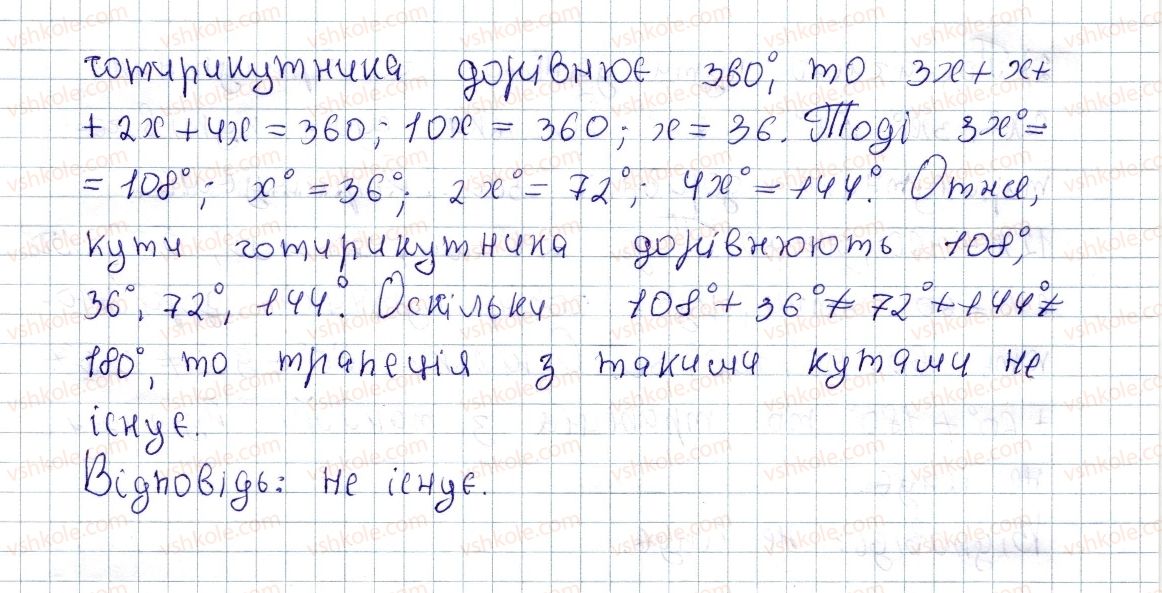 чотирикутника дорівнює 360°, то 3x + x +
+ 2x + 4x = 360; 10x = 360; x = 36. Тоді 3x° =
= 108°; x° = 36°; 2x° = 72°; 4x° = 144°. Отже,
кути чотирикутника дорівнюють 108°,
36°, 72°, 144°. Оскільки 108° + 36° ≠ 72° + 144° ≠
180°, то трапеція з такими кутами не
існує.
Відповідь: не існує.